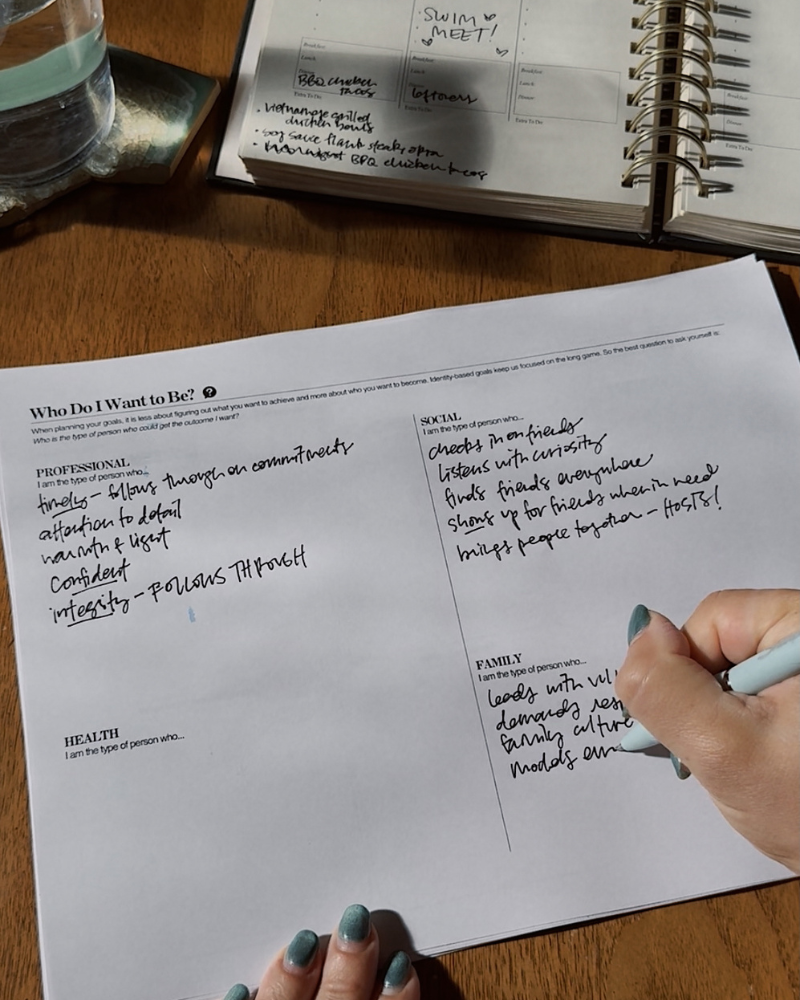 SWIM
MEET!
Breakfast
Lunch
Dinner
BBQ chicken
tacos
Extra To Do
Breakfast
Lunch
leftovers
Extra To Do
Breakfast
Lunch
Dinner
Extra To Do
Breakfast
Dinner
Extra To Do
• vietnamese grilled
chicken bowls
• soy sauce flank steak, okra
• BBQ chicken tacos
Who Do I Want to Be? ?
When planning your goals, it is less about figuring out what you want to achieve and more about who you want to become. Identity-based goals keep us focused on the long game. So the best question to ask yourself is:
Who is the type of person who could get the outcome I want?
PROFESSIONAL
I am the type of person who...
timely – follows through on commitments
attention to detail
warmth & light
confident
integrity – FOLLOWS THROUGH
HEALTH
I am the type of person who...
SOCIAL
I am the type of person who...
checks in on friends
listens with curiosity
finds friends everywhere
shows up for friends when in need
brings people together – HOSTS!
FAMILY
I am the type of person who...
leads with
demands
family culture
models